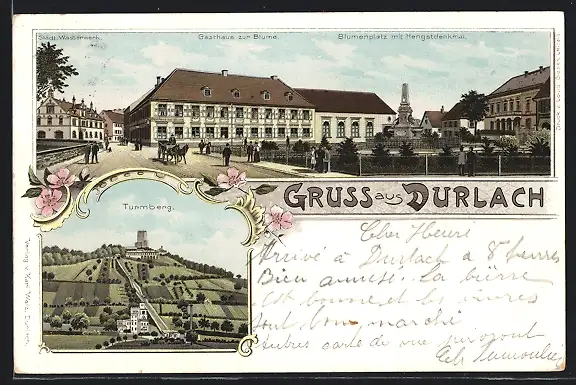 Städt. Wasserwerk.
Gasthaus zur Blume.
Blumenplatz mit Hengstdenkmal.
GRUSS aus DURLACH
Turmberg.
Cher
Arrivé à Durlach à 8 heures
Bien amusé. La bière
est bonne et les vivres
sont bon marché
Autres carte de vue suivront